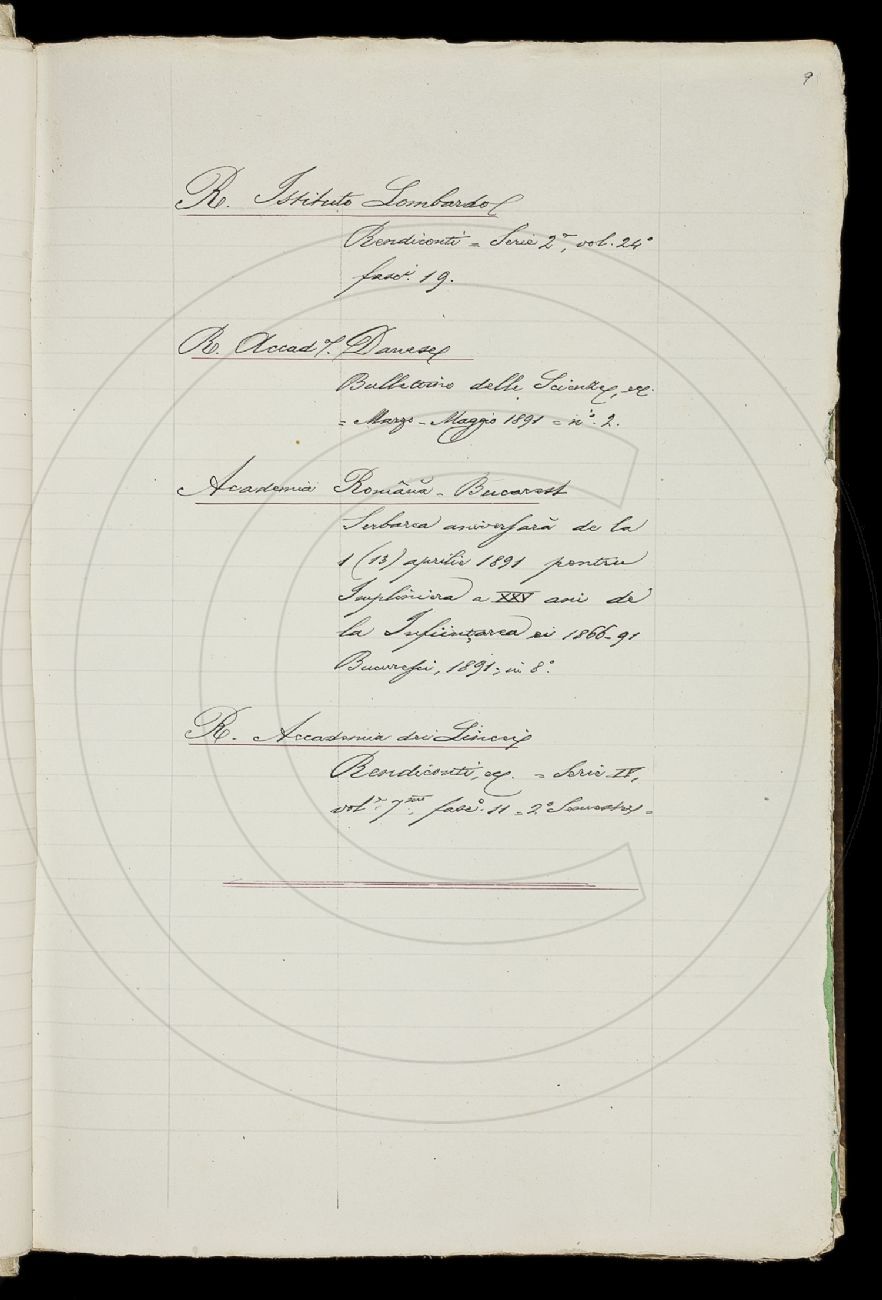 9
R. Istituto Lombardo
Rendiconti = Serie 2ª, vol. 24º
fascº. 19.
R. Accad.
Bullettino delle Scienze, ec.
= Marzo - Maggio 1891 = nº. 2.
Academia Română - Bucarest
Serbarea aniversară de la
1 (13) aprilie 1891 pentru
Impliniera a XXV ani de
la Inființarea ei 1866-91
Bucuresci, 1891; in 8º.
R. Accademia dei Lincei
Rendiconti, ec. = Serie IV,
vol. 7mo, fascº. 11 = 2º Semestre =